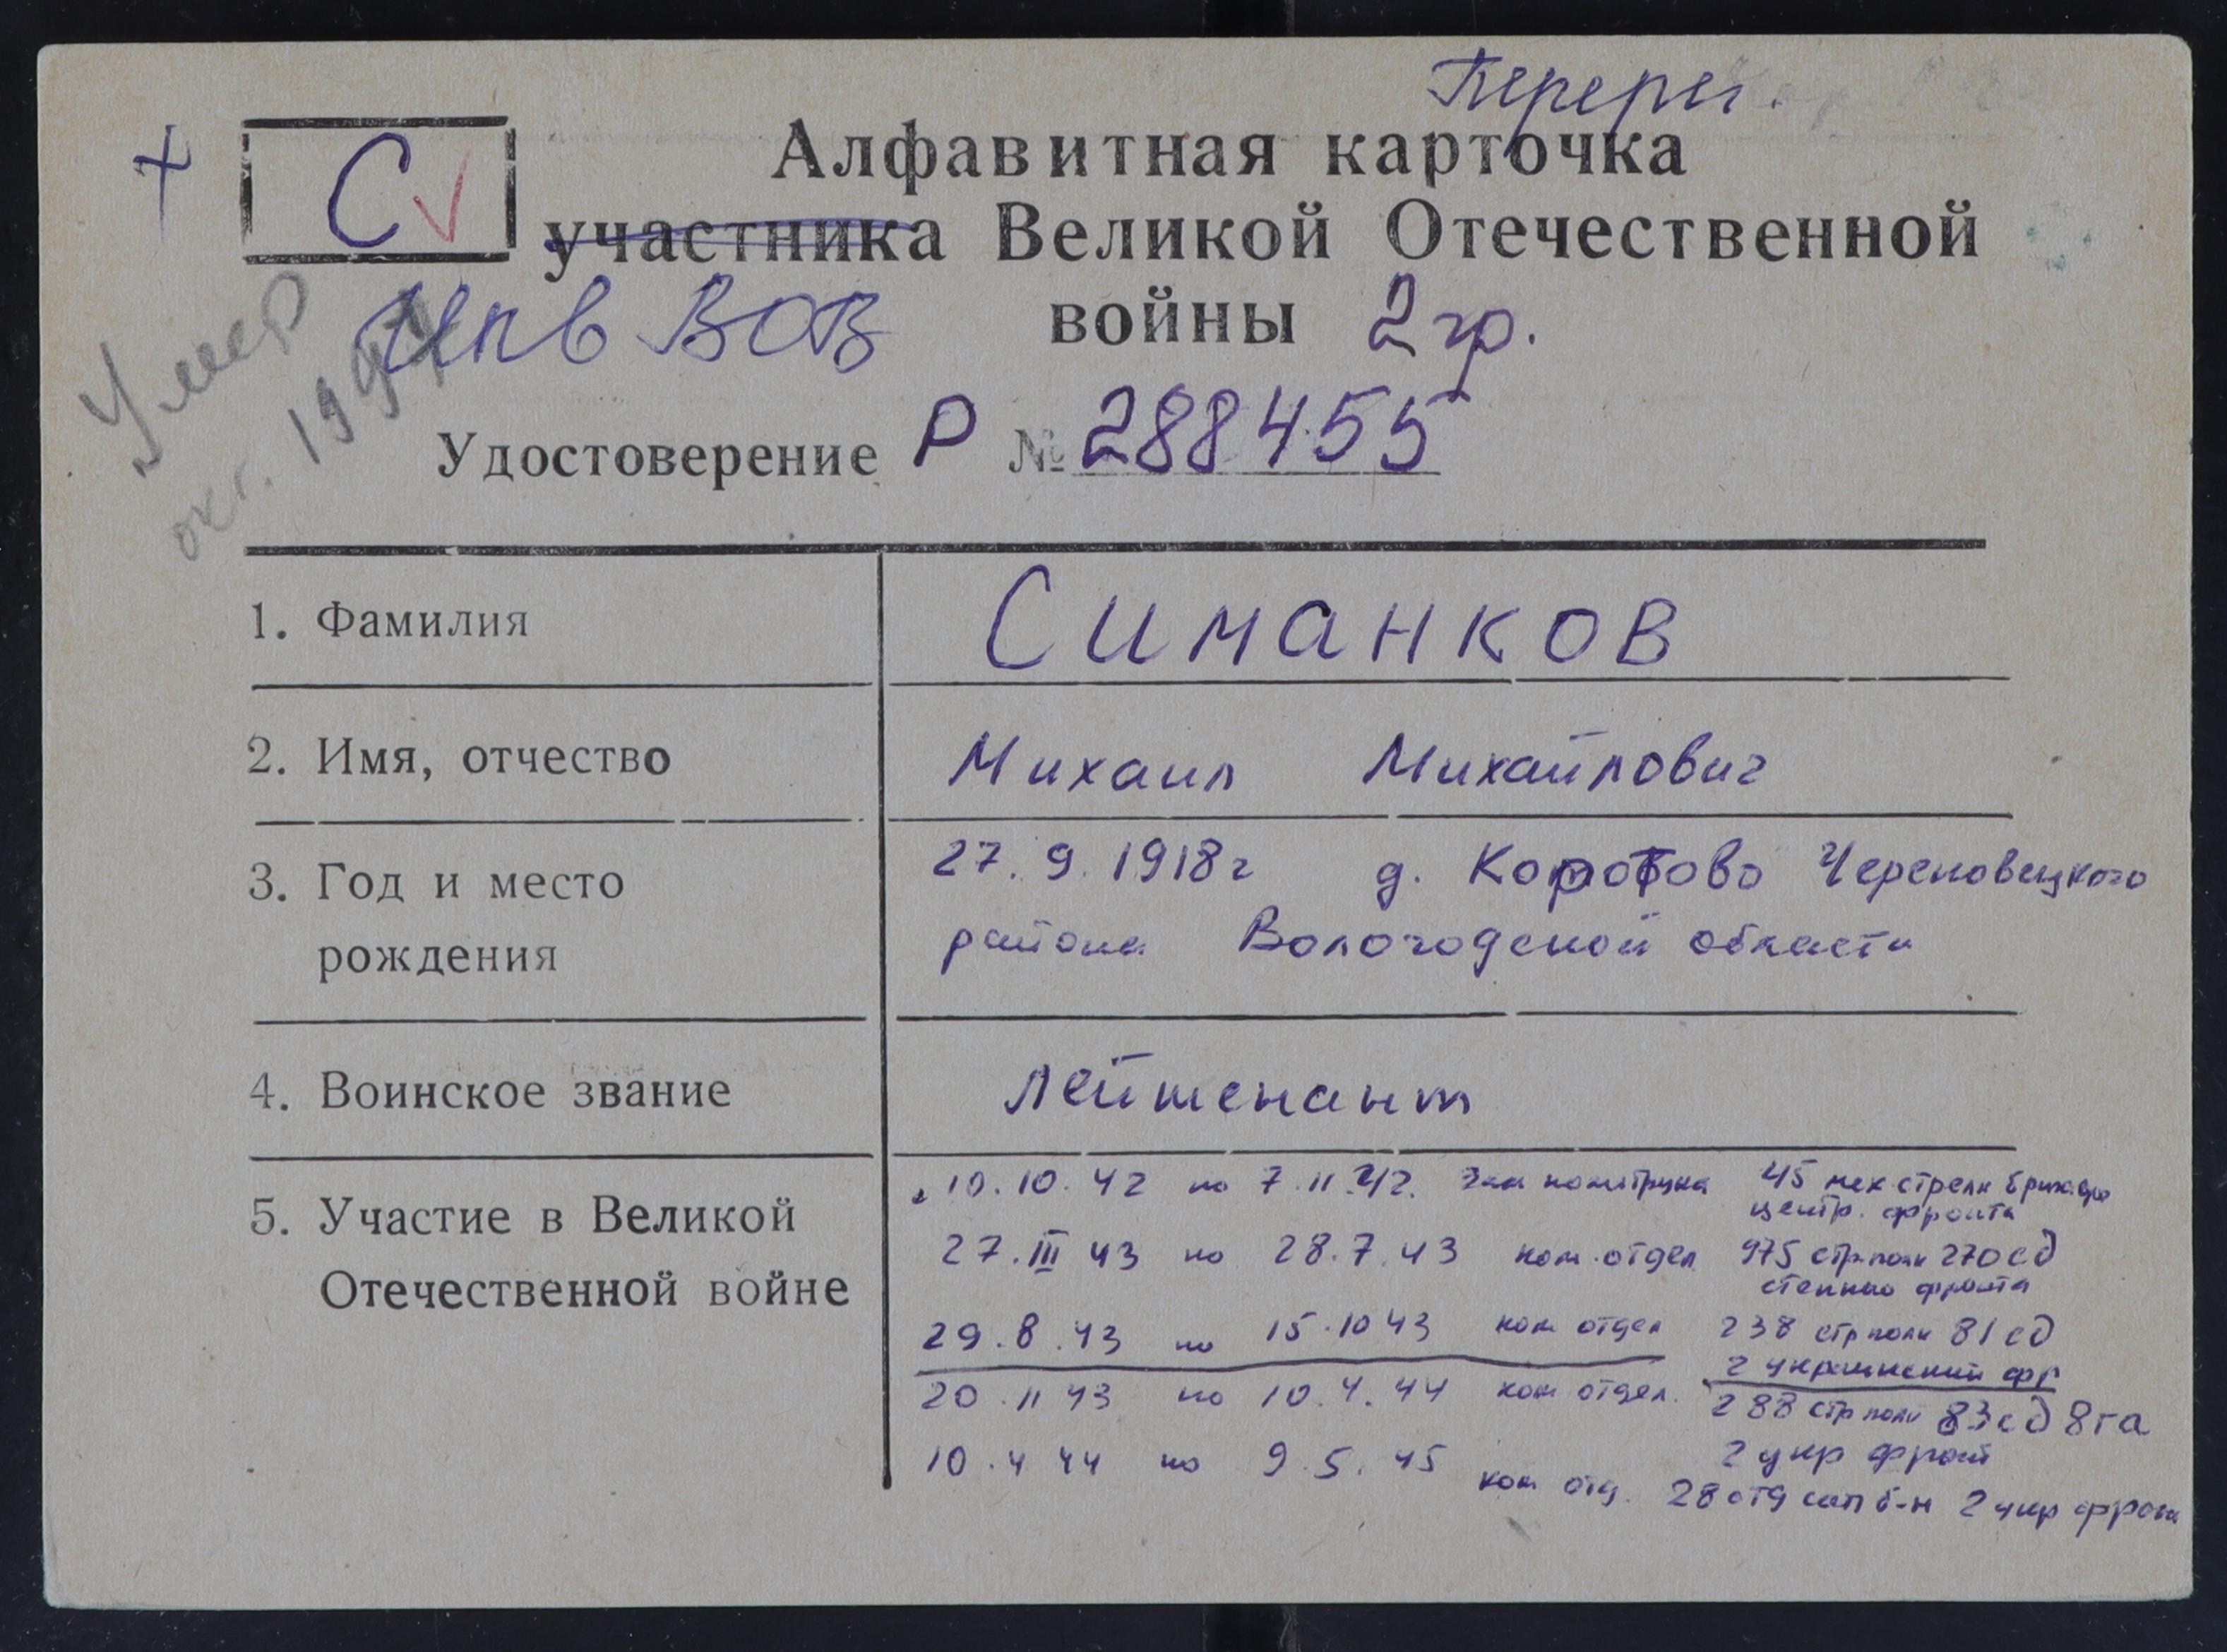 Перерег.
+
С
Алфавитная карточка
участника Великой Отечественной
войны 2 гр.
ВОВ
Умер
окт.
Удостоверение Р № 288455
1. Фамилия
Симанков
2. Имя, отчество
Михаил Михайлович
3. Год и место
рождения
27. 9. 1918 г д. Коротово Череповецкого
района Вологодской области
4. Воинское звание
лейтенант
5. Участие в Великой
Отечественной войне
с 10.10.42 по 7.11.42. Зам политрука 45 мех стрелк бригады
центр. фронта
27.III 43 по 28.7.43 ком. отдел 975 стр. полк 270 сд
степного фронта
29.8.43 по 15.10 43 ком отдел 238 стр полк 81 сд
2 украинский фр
20.11 43 по 10.4.44 ком отдел. 288 стр полк 83 сд 8 га
2 укр фронт
10.4 44 по 9.5.45 ком отд. 28 отд сап б-н 2 укр фронт